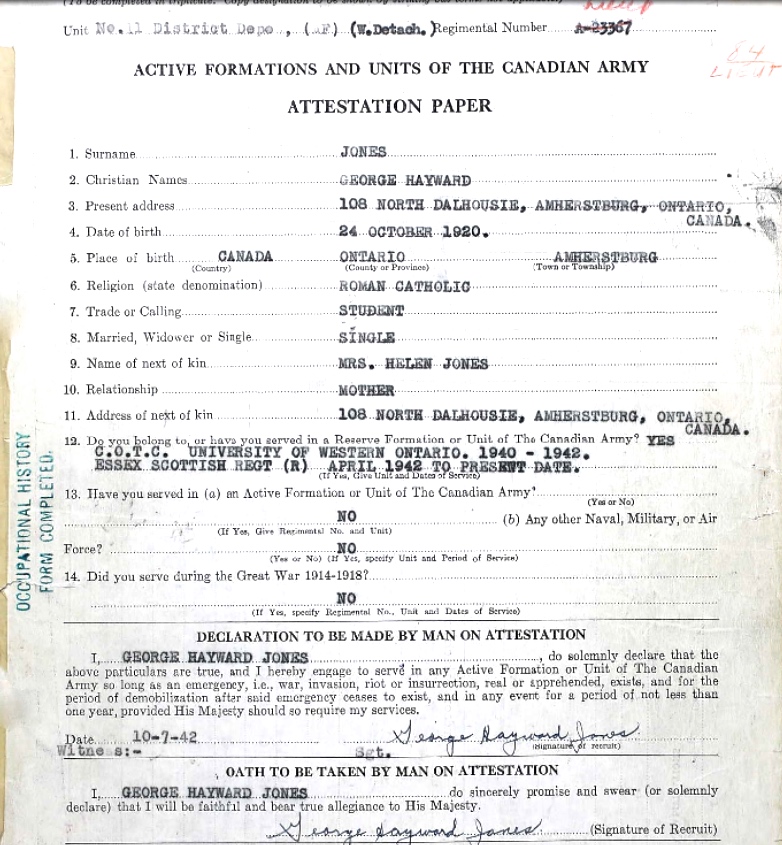 Unit No. 11 District Depo , ( F) (W.Detach.) Regimental Number A-23367
LIEUT
ACTIVE FORMATIONS AND UNITS OF THE CANADIAN ARMY
ATTESTATION PAPER
1. Surname JONES
2. Christian Names GEORGE HAYWARD
3. Present address 108 NORTH DALHOUSIE, AMHERSTBURG, ONTARIO,
CANADA.
4. Date of birth 24 OCTOBER 1920.
5. Place of birth CANADA ONTARIO AMHERSTBURG
(Country) (County or Province) (Town or Township)
6. Religion (state denomination) ROMAN CATHOLIC
7. Trade or Calling STUDENT
8. Married, Widower or Single SINGLE
9. Name of next of kin MRS. HELEN JONES
10. Relationship MOTHER
11. Address of next of kin 108 NORTH DALHOUSIE, AMHERSTBURG, ONTARIO,
CANADA.
12. Do you belong to, or have you served in a Reserve Formation or Unit of The Canadian Army? YES
C.O.T.C. UNIVERSITY OF WESTERN ONTARIO. 1940 - 1942.
ESSEX SCOTTISH REGT (R) APRIL 1942 TO PRESENT DATE.
(If Yes, Give Unit and Dates of Service)
13. Have you served in (a) an Active Formation or Unit of The Canadian Army?
(Yes or No)
NO (b) Any other Naval, Military, or Air
(If Yes, Give Regimental No. and Unit)
Force? NO
(Yes or No) (If Yes, specify Unit and Period of Service)
14. Did you serve during the Great War 1914-1918?
NO
(If Yes, specify Regimental No., Unit and Dates of Service)
OCCUPATIONAL HISTORY
FORM COMPLETED.
DECLARATION TO BE MADE BY MAN ON ATTESTATION
I, GEORGE HAYWARD JONES, do solemnly declare that the
above particulars are true, and I hereby engage to serve in any Active Formation or Unit of The Canadian
Army so long as an emergency, i.e., war, invasion, riot or insurrection, real or apprehended, exists, and for the
period of demobilization after said emergency ceases to exist, and in any event for a period of not less than
one year, provided His Majesty should so require my services.
Date 10-7-42 George Hayward Jones
(Signature of recruit)
Witness:- Sgt.
OATH TO BE TAKEN BY MAN ON ATTESTATION
I, GEORGE HAYWARD JONES do sincerely promise and swear (or solemnly
declare) that I will be faithful and bear true allegiance to His Majesty.
George Hayward Jones (Signature of Recruit)